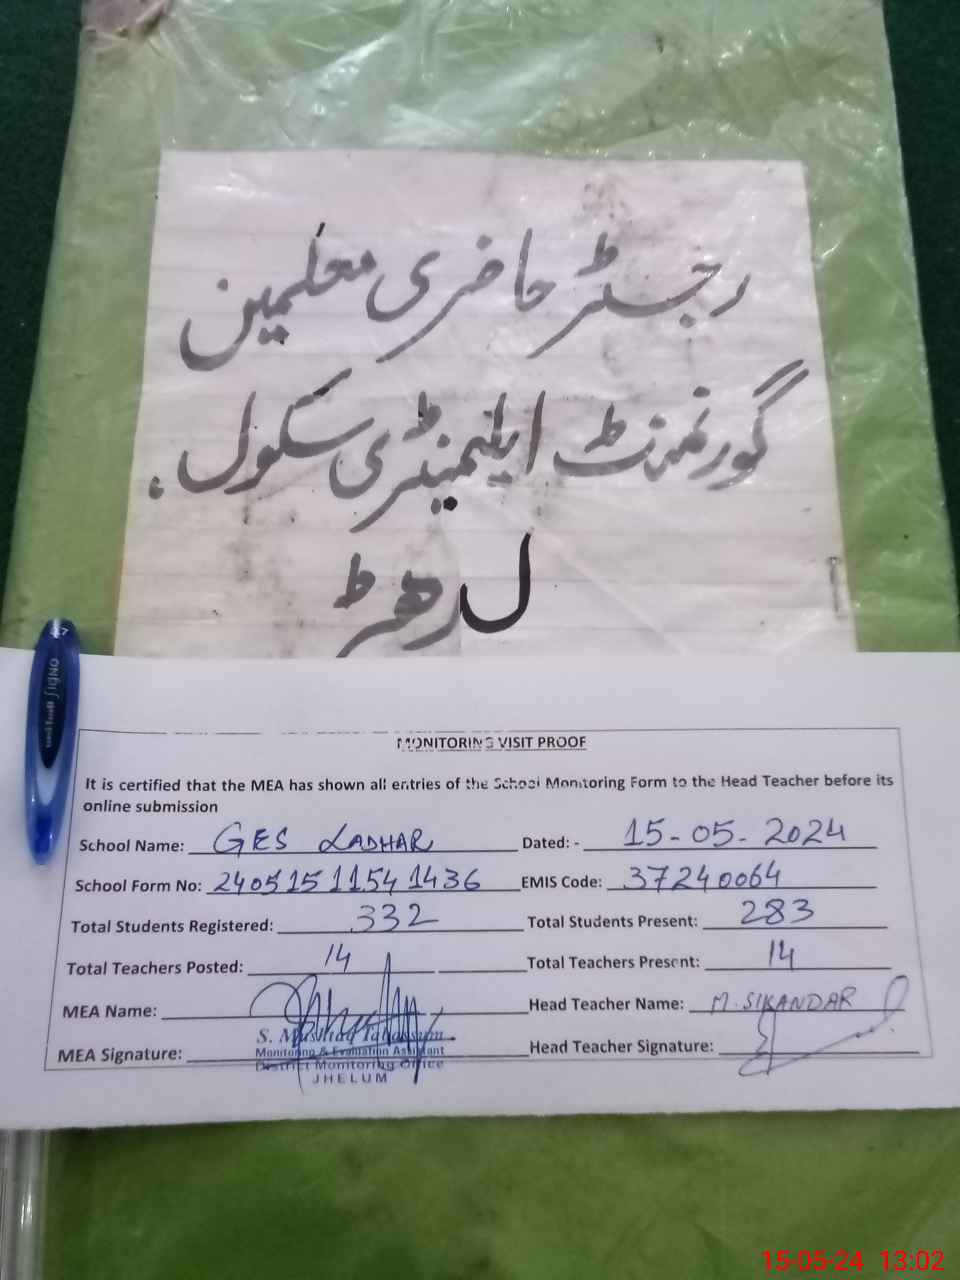 رجسٹر حاضری معلمین
گورنمنٹ ایلیمنٹری سکول۔
لدھڑ
uni-ball SIGNO
MONITORING VISIT PROOF
It is certified that the MEA has shown all entries of the School Monitoring Form to the Head Teacher before its
online submission
School Name: GES LADHAR Dated: - 15-05-2024
School Form No: 2405151154 1436 EMIS Code: 37240064
Total Students Registered: 332 Total Students Present: 283
Total Teachers Posted: 14 Total Teachers Present: 14
MEA Name: Head Teacher Name: M. SIKANDAR
S. Mushtaq Tabassum
MEA Signature: Head Teacher Signature:
Monitoring & Evaluation Assistant
District Monitoring Office
JHELUM
15-05-24 13:02